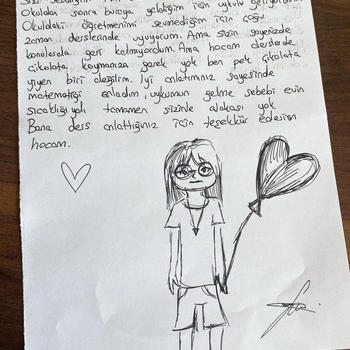 Okuldan sonra buraya geldiğim için uykulu geliyorum
Okuldaki öğretmenimi sevmediğim için çoğu
zaman derslerinde uyuyorum. Ama sizin sayenizde
konularda geri kalmıyordum. Ama hocam derslerde
çikolata koymanıza gerek yok ben pek çikolata
yiyen biri değilim. İyi anlatımınız sayesinde
matematiği anladım, uykumun gelme sebebi evin
sıcaklığı yok tamamen sizinle alakası yok
Bana ders anlattığınız için teşekkür ederim
hocam.